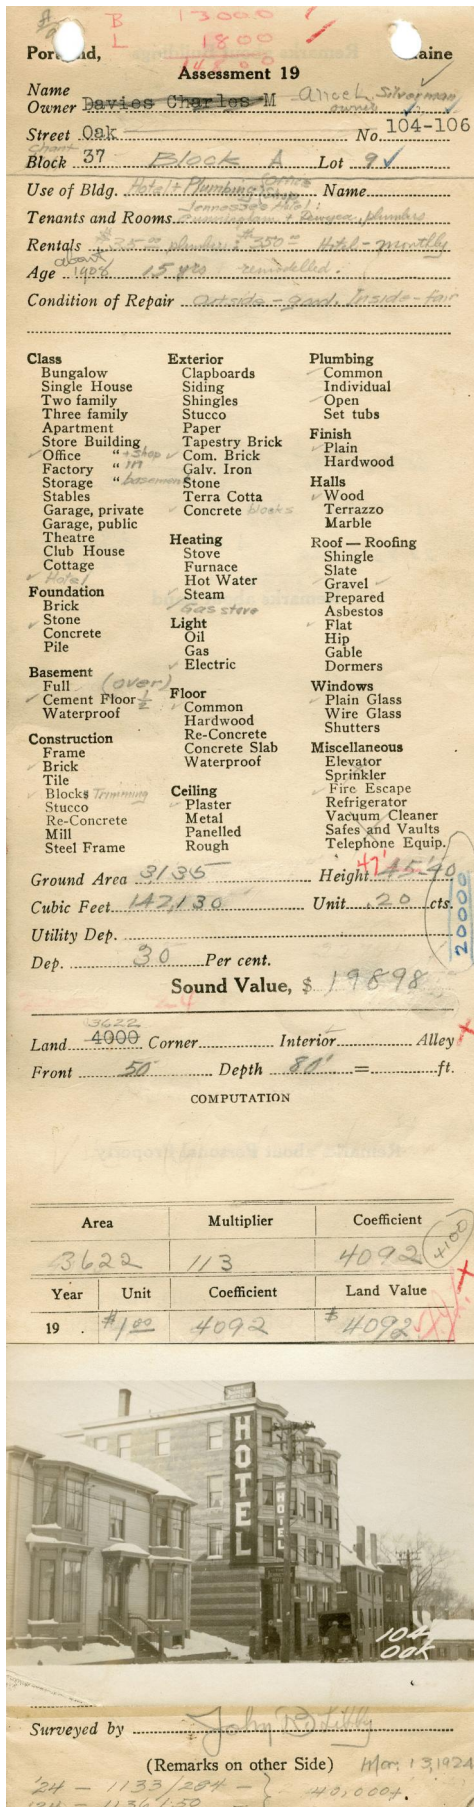 B 13000
L 1800
14800
Portland, Maine
Assessment 19
Name
Owner Davies Charles M Ancel Silverman
owner
Street Oak No 104-106
Chart
Block 37 Block A Lot 9
Use of Bldg. Hotel + Plumbing Office Shop Name
Tennessee Hotel:
Tenants and Rooms Cunningham + plumbers
Rentals $25.00 plumbers: $350.00 Hotel - monthly
about
Age 1908 15 yrs remodelled.
Condition of Repair Outside - good, Inside - fair
Class
Bungalow
Single House
Two family
Three family
Apartment
Store Building
Office " + shop
Factory " in
Storage " basement
Stables
Garage, private
Garage, public
Theatre
Club House
Cottage
Hotel
Foundation
Brick
Stone
Concrete
Pile
Basement
Full (over)
Cement Floor 1/2
Waterproof
Construction
Frame
Brick
Tile
Blocks Trimming
Stucco
Re-Concrete
Mill
Steel Frame
Exterior
Clapboards
Siding
Shingles
Stucco
Paper
Tapestry Brick
Com. Brick
Galv. Iron
Stone
Terra Cotta
Concrete blocks
Heating
Stove
Furnace
Hot Water
Steam
Gas stove
Light
Oil
Gas
Electric
Floor
Common
Hardwood
Re-Concrete
Concrete Slab
Waterproof
Ceiling
Plaster
Metal
Panelled
Rough
Plumbing
Common
Individual
Open
Set tubs
Finish
Plain
Hardwood
Halls
Wood
Terrazzo
Marble
Roof — Roofing
Shingle
Slate
Gravel
Prepared
Asbestos
Flat
Hip
Gable
Dormers
Windows
Plain Glass
Wire Glass
Shutters
Miscellaneous
Elevator
Sprinkler
Fire Escape
Refrigerator
Vacuum Cleaner
Safes and Vaults
Telephone Equip.
Ground Area 3,135 Height 47' 45'-40
Cubic Feet 142,130 Unit .20 cts.
20000
Utility Dep.
Dep. 30 Per cent.
Sound Value, $ 19898
3622
Land 4000 Corner Interior Alley
Front 50 Depth 80' = ft.
COMPUTATION
Area Multiplier Coefficient
3622 113 4092 4100
Year Unit Coefficient Land Value
19 . $1.00 4092 $4092
HOTEL
HOTEL
104
Oak
Surveyed by John B Libby
(Remarks on other Side) Mar. 13, 1924
'24 - 1133/284 -
40,000
'24 - 1136 1:50